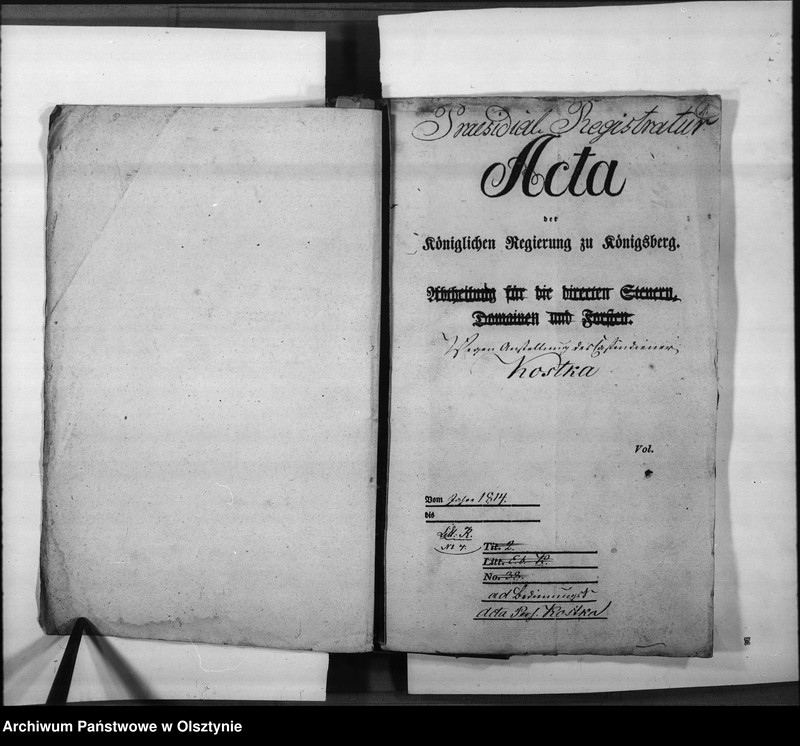 Praesidial. Registratur
Acta
der
Königlichen Regierung zu Königsberg.
Abtheilung für die directen Steuern,
Domainen und Forsten.
Wegen Anstellung des Cassendiener
Kostka
Vol.
Vom Jahre 1814.
bis
Litt. K.
No 4.
Tit. 2.
Litt. K.
No. 38.
ad
acta Kostka
Archiwum Państwowe w Olsztynie